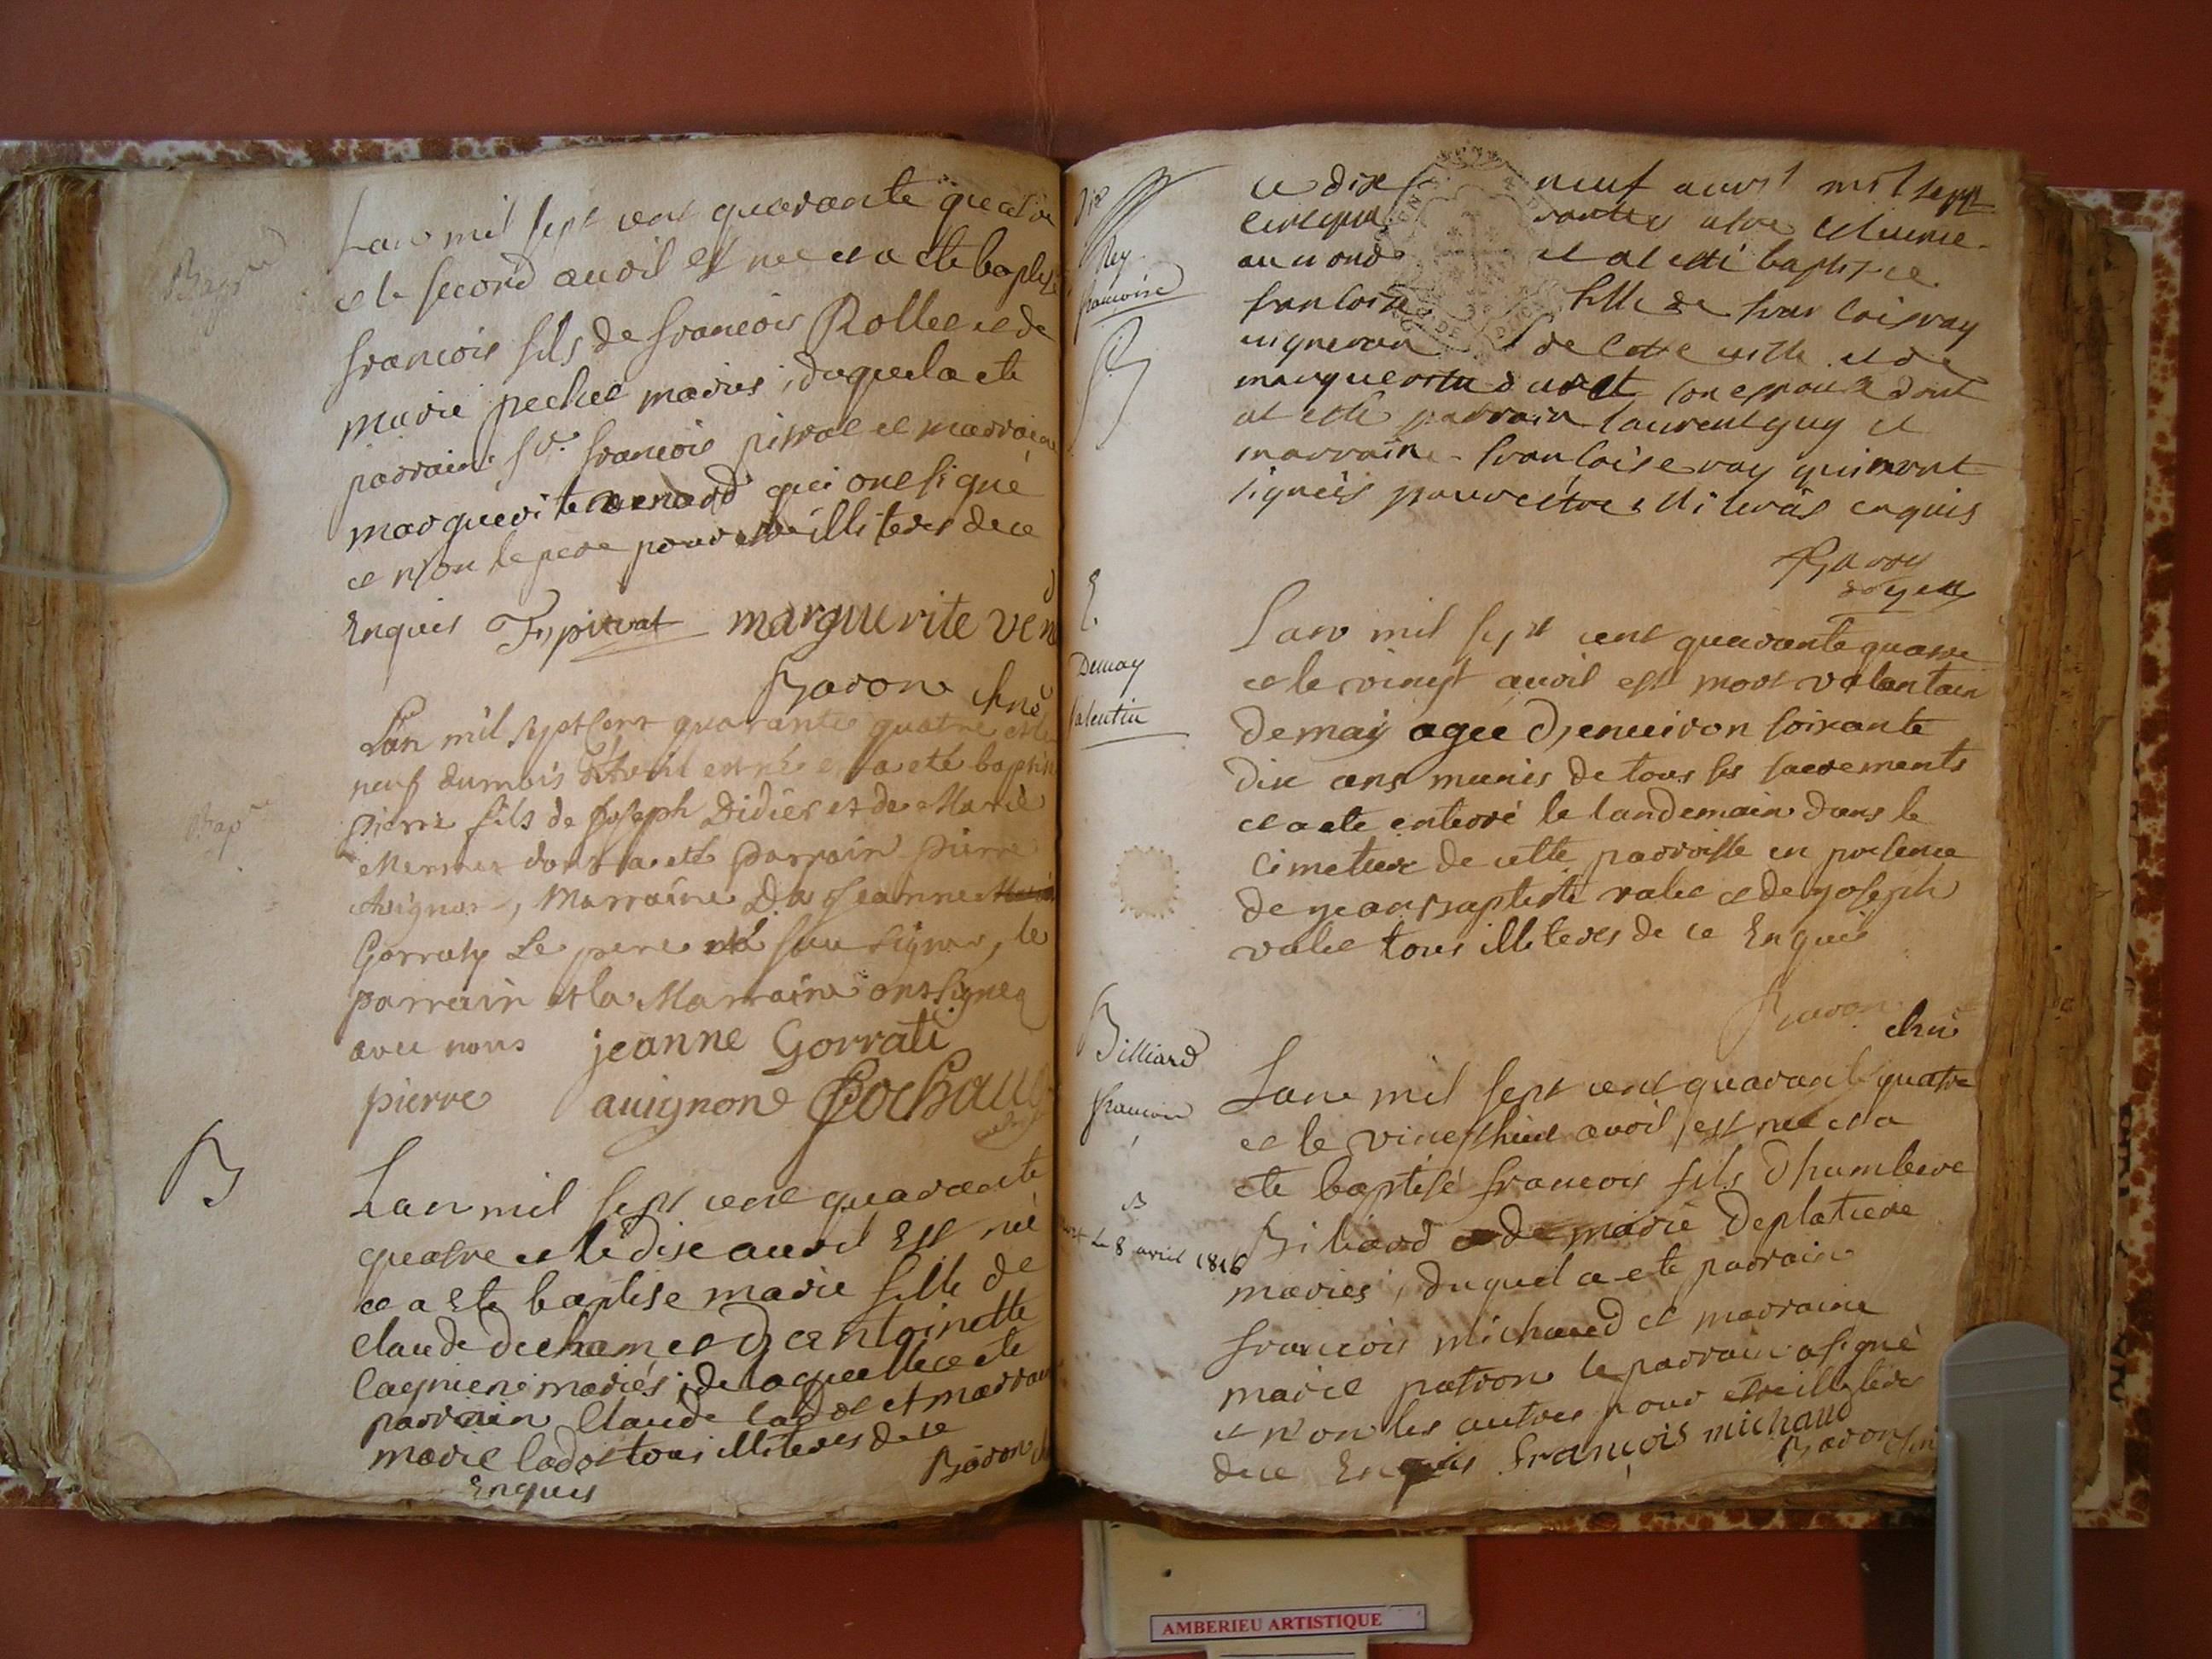 Bap
Lan mil sept cent quarante quatre
et le second avril est né et a ete baptise
francois fils de francois Rollet et de
marie pechet mariés, duquel a ete
parrain sr. francois pitrat et marraine
marguerite venard qui ont signé
et non le pere pour etre illiteres de ce
Enquis Fs pitrat marguerite ven
Baron chne
Bap
Lan mil sept cent quarante quatre et le
neuf du mois d'Avril est né et a eté baptisé
pierre fils de Joseph Didier et de Marie
dont a eté parrain pierre
Avignon, Marraine Dlle Jeanne
Gorraty Le pere n'a sceu signer, le
parrain et la Marraine ont signés
avec nous jeanne Gorrati
pierre avignone Cochaud
B
Lan mil sept cent quarante
quatre et le dix avril Est né
et a Ete baptise marie fille de
claude dechamet D'antoinette
mariés, de laquelle a ete
parrain Claude ladot et marraine
marie ladot tous illiteres de ce
Enquis Baron
Rey
francoise
B
ce dix neuf avrit mil sept
cent quarante quatre est venue
au monde et at esté baptisée
francoise fille de francois ray
vigneron de cette ville et de
marguerite duret son espouze dont
at esté parrain laurent guy et
marraine francoise ray qui n'ont
signés pour estre illiterés enquis
Garry
doyen
E
Demay
Valentin
Lan mil sept cent quarante quatre
et le vingt avril est mort valantain
demay agée d'environ soixante
dix ans munis de tous les sacrements
et a ete enterré le landemain dans le
cimetiere de cette parroisse en presence
de jean baptiste valec et de joseph
valec tous illiteres de ce Enquis
Baron chne
Billiard
francois
B
mort le 8 avril 1816
Lan mil sept cent quarante quatre
et le vingt huit avril est né et a
ete baptisé francois fils d'humbert
Biliard et de marie deplatiere
mariés, duquel a ete parrain
francois michaud et marraine
marie patron le parrain a signé
et non les autres pour etre illiteres
de ce Enquis françois michaud
Baron chne
AMBERIEU ARTISTIQUE